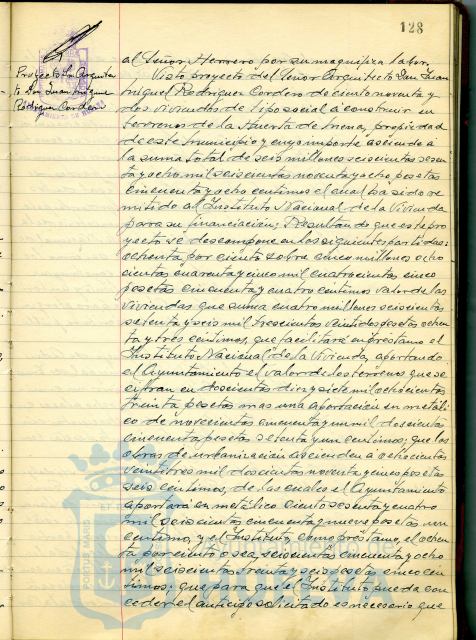 128
al Señor Herrero por su magnífica labor.
Proyecto Sr. Arquitec
to Don Juan Miguel
Rodríguez Cordero
Visto proyecto del Señor Arquitecto Don Juan
Miguel Rodríguez Cordero de ciento noventa y
dos viviendas de tipo social a construir en
terrenos de la Huerta de Mena, propiedad
de este Municipio y cuyo importe asciende a
la suma total de seis millones seiscientas sesen
ta y ocho mil seiscientas noventa y ocho pesetas
cincuenta y ocho centimos el cual ha sido re
mitido al Instituto Nacional de la Vivienda
para su financiación; Resultando que este pro
yecto se descompone en los siguientes partidas:
ochenta por ciento sobre cinco millones ocho
cientas cuarenta y cinco mil cuatrocientas cinco
pesetas cincuenta y cuatro centimos valor de las
viviendas que suma cuatro millones seiscientas
setenta y seis mil trescientas veintidos pesetas ochen
ta y tres centimos, que facilitará en préstamo el
Instituto Nacional de la Vivienda, aportando
el Ayuntamiento el valor de los terrenos que se
cifran en doscientas diez y siete mil ochocientas
treinta pesetas mas una aportación en metáli
co de novecientas cincuenta y un mil doscientas
cincuenta pesetas setenta y un centimos; que las
obras de urbanización ascienden a ochocientas
veintitres mil doscientas noventa y cinco pesetas
seis centimos, de las cuales el Ayuntamiento
aportará en metálico ciento sesenta y cuatro
mil seiscientas cincuenta y nueve pesetas un
centimo, y el Instituto, como préstamo, el ochen
ta por ciento o sea, seiscientas cincuenta y ocho
mil seiscientas treinta y seis pesetas cinco cén
timos; que para que el Instituto pueda con
ceder el anticipo solicitado es necesario que